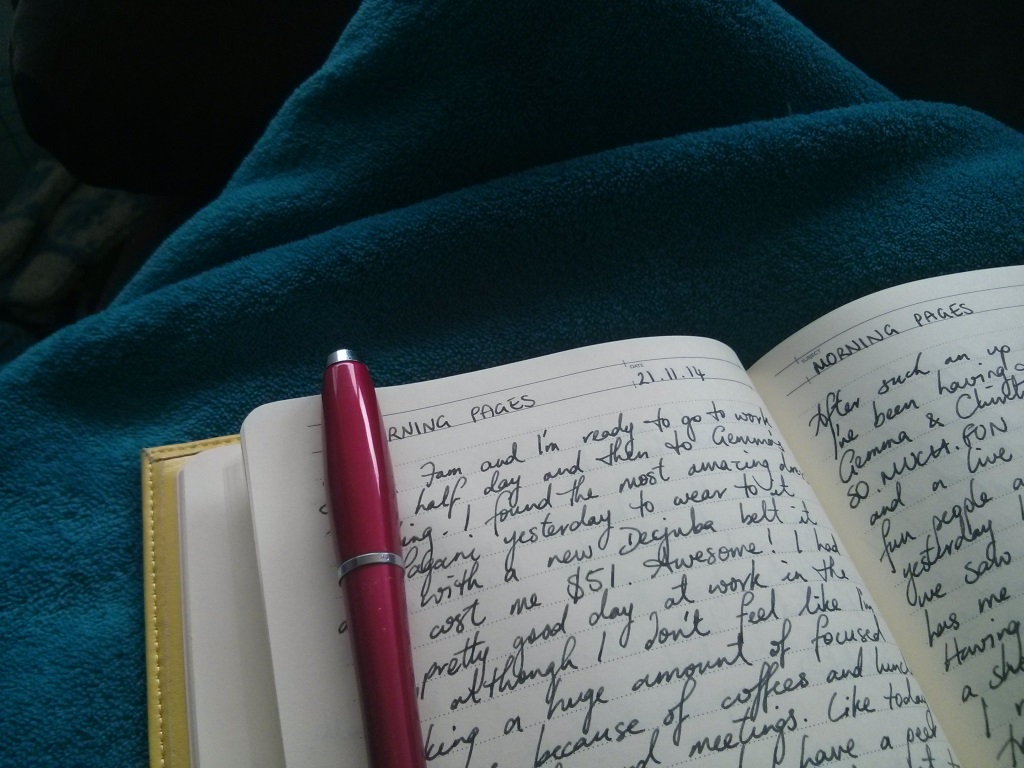 DATE
21.11.14
RNING PAGES
7am and I'm ready to go to work
half day and then to Gemma
ing. I found the most amazing
Pagani yesterday to wear to it
with a new Decjuba belt it
cost me $51. Awesome! I had
pretty good day at work in the
although I don't feel like I'm
king a huge amount of focused
because of coffees and lunch
meetings. Like today
I have a peer
SUBJECT
MORNING PAGES
After such an up
I've been having
Gemma &
SO MUCH FUN
and a live
fun people a
yesterday I
we saw
has me
Having
a sh
I